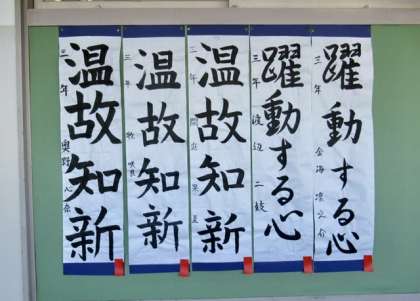 躍動する心
三年
躍動する心
三年 渡辺
温故知新
三年
温故知新
三年 牧
温故知新
三年 奥野